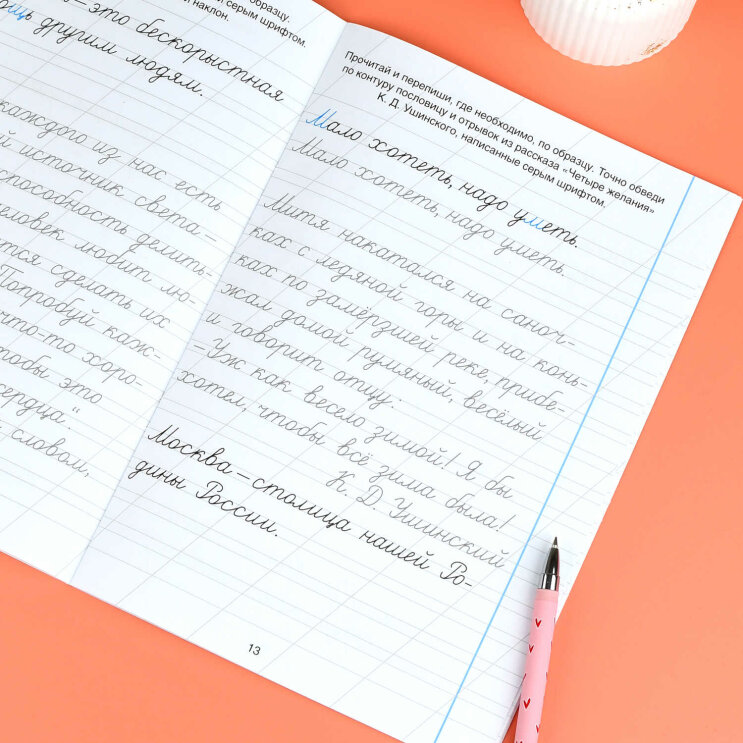 серым шрифтом.
наклон.
— это бескорыстная
другим людям.
каждого из нас есть
источник света —
способность делить-
человек любит лю-
сделать их
Попробуй каж-
что-то хоро-
это
сердца."
словом,
Прочитай и перепиши, где необходимо, по образцу. Точно обведи
по контуру пословицу и отрывок из рассказа «Четыре желания»
К. Д. Ушинского, написанные серым шрифтом.
Мало хотеть, надо уметь.
Мало хотеть, надо уметь.
Митя накатался на саноч-
ках с ледяной горы и на конь-
ках по замёрзшей реке, прибе-
жал домой румяный, весёлый
и говорит отцу:
— Уж как весело зимой! Я бы
хотел, чтобы всё зима была!
К. Д. Ушинский
Москва — столица нашей Ро-
дины России.
13